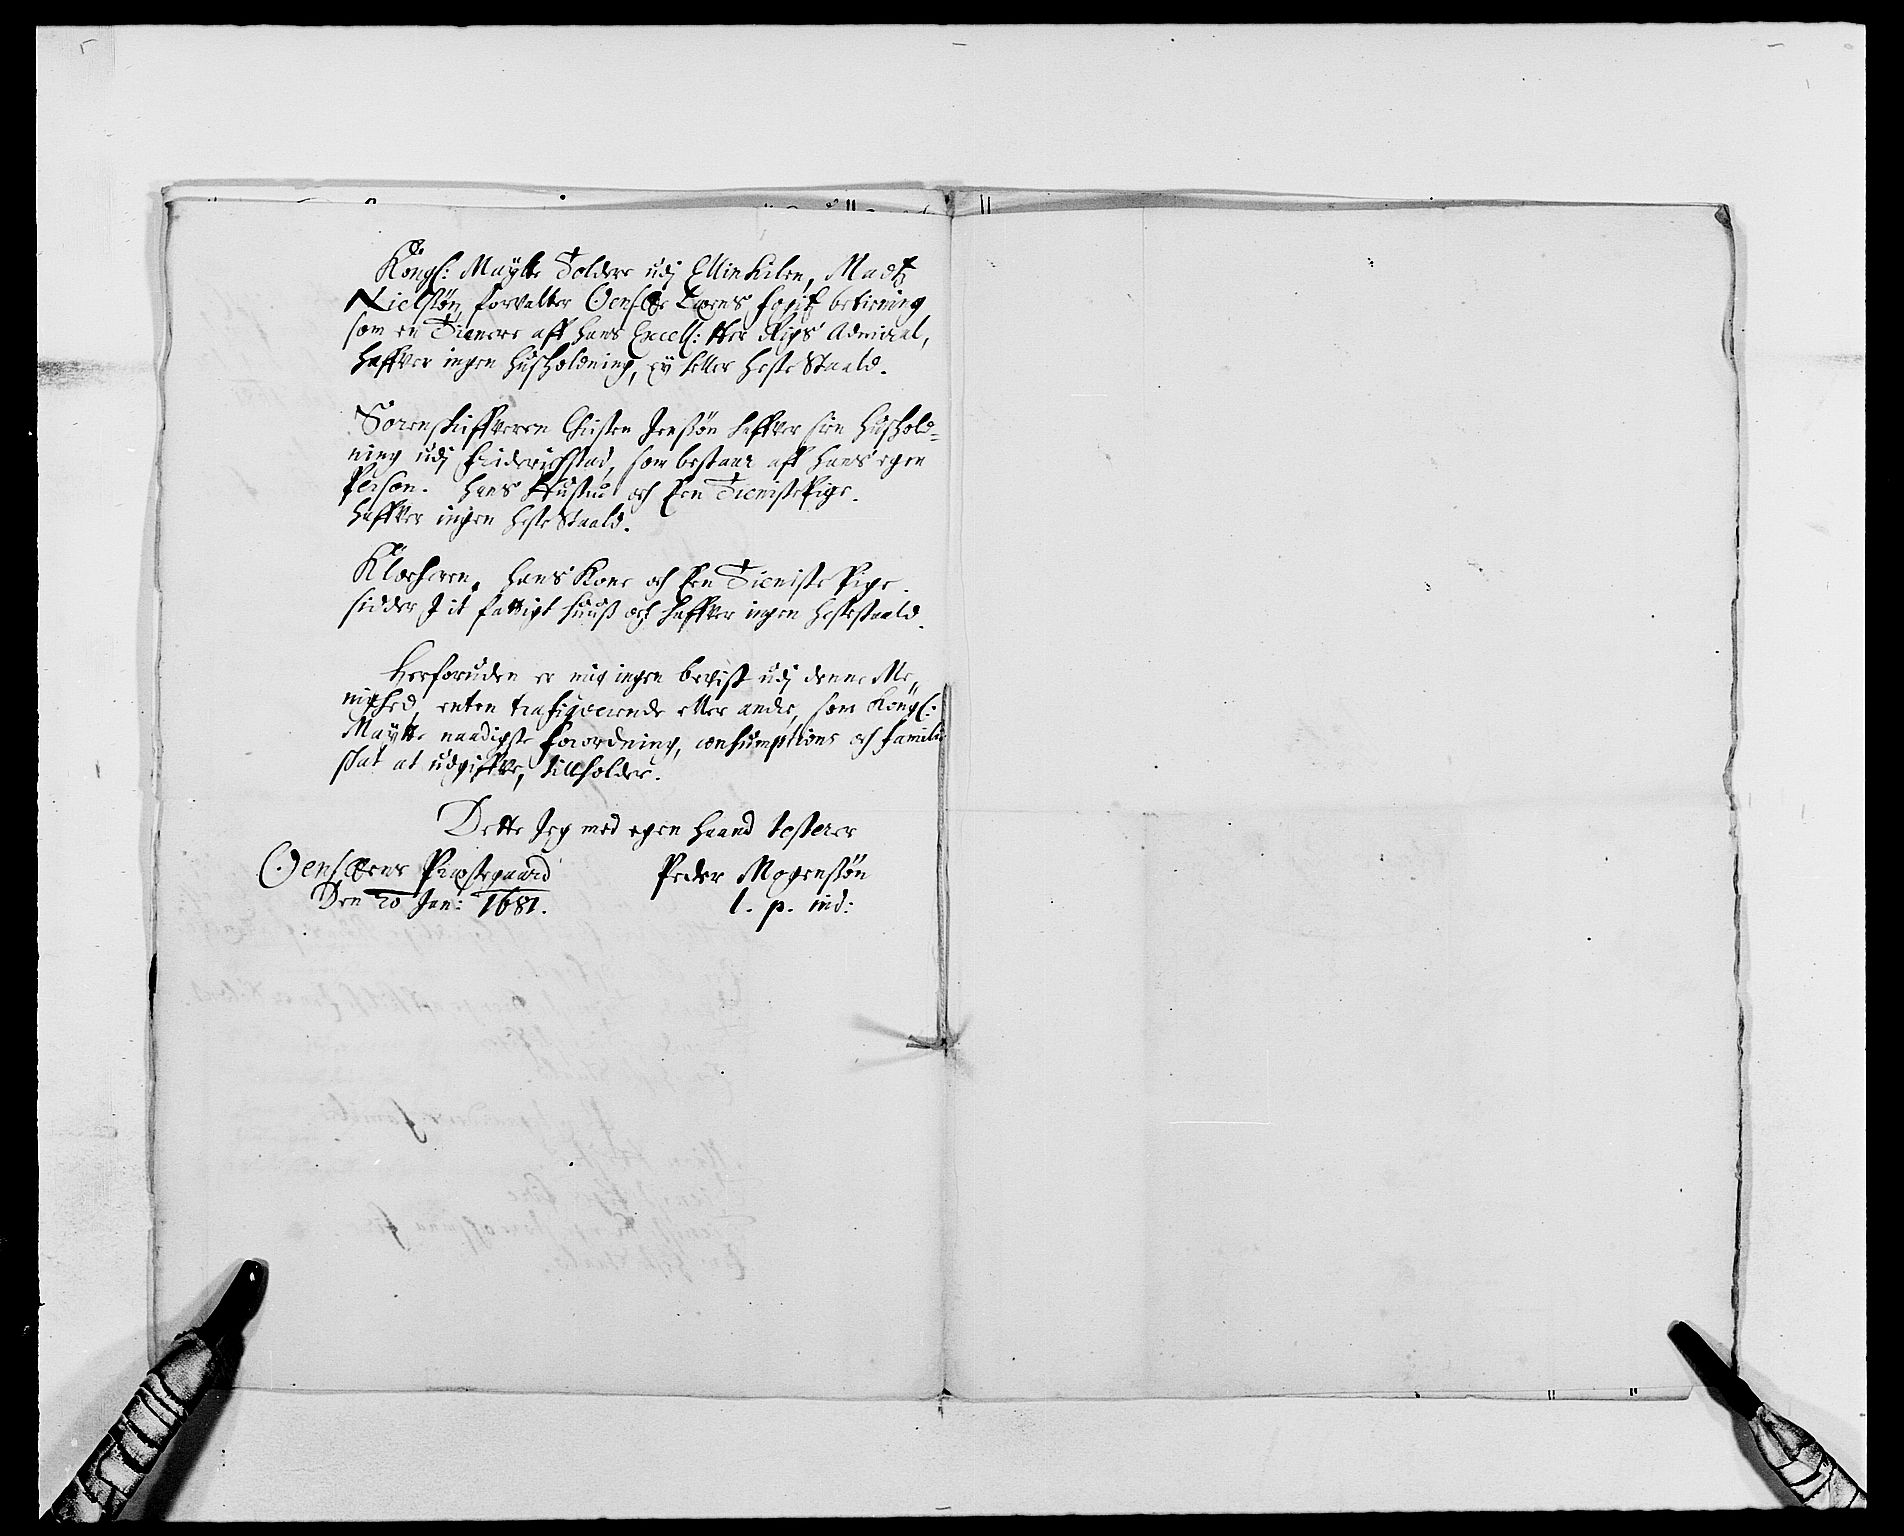 Kongl: Maytts Tolder udj Ellinkilen, Madtz
Nielsøn, forvalter Oensøe Læens fogit betiening
som en Tienere aff hans Excell: Her Rigs Admiral,
haffver ingen husholdning, ey heller heste Staald.
Sorenskriffveren Christen Jensøn haffver sin hushold=
ning udj Friderichstad, som bestaar aff hans egen
Person. hans Hustru och Een Tieniste Pige.
haffver ingen heste Staald.
Klocheren, hans Kone och Een Tieniste Pige.
sidder J it fattigt huuß och haffver ingen hestestaald.
Herforuden er mig ingen bevist udj denne Me,
nighed, enten trafiqverende eller andre, som Kongl:
Maytts naadigste forordning, consumptions och familie
skat at udgiffve, tillholder.
Dette Jeg med egen Haand testerer
Oensøens Præstegaard Peder Mogensøn
Den 20 Jan: 1681. l. p. md: